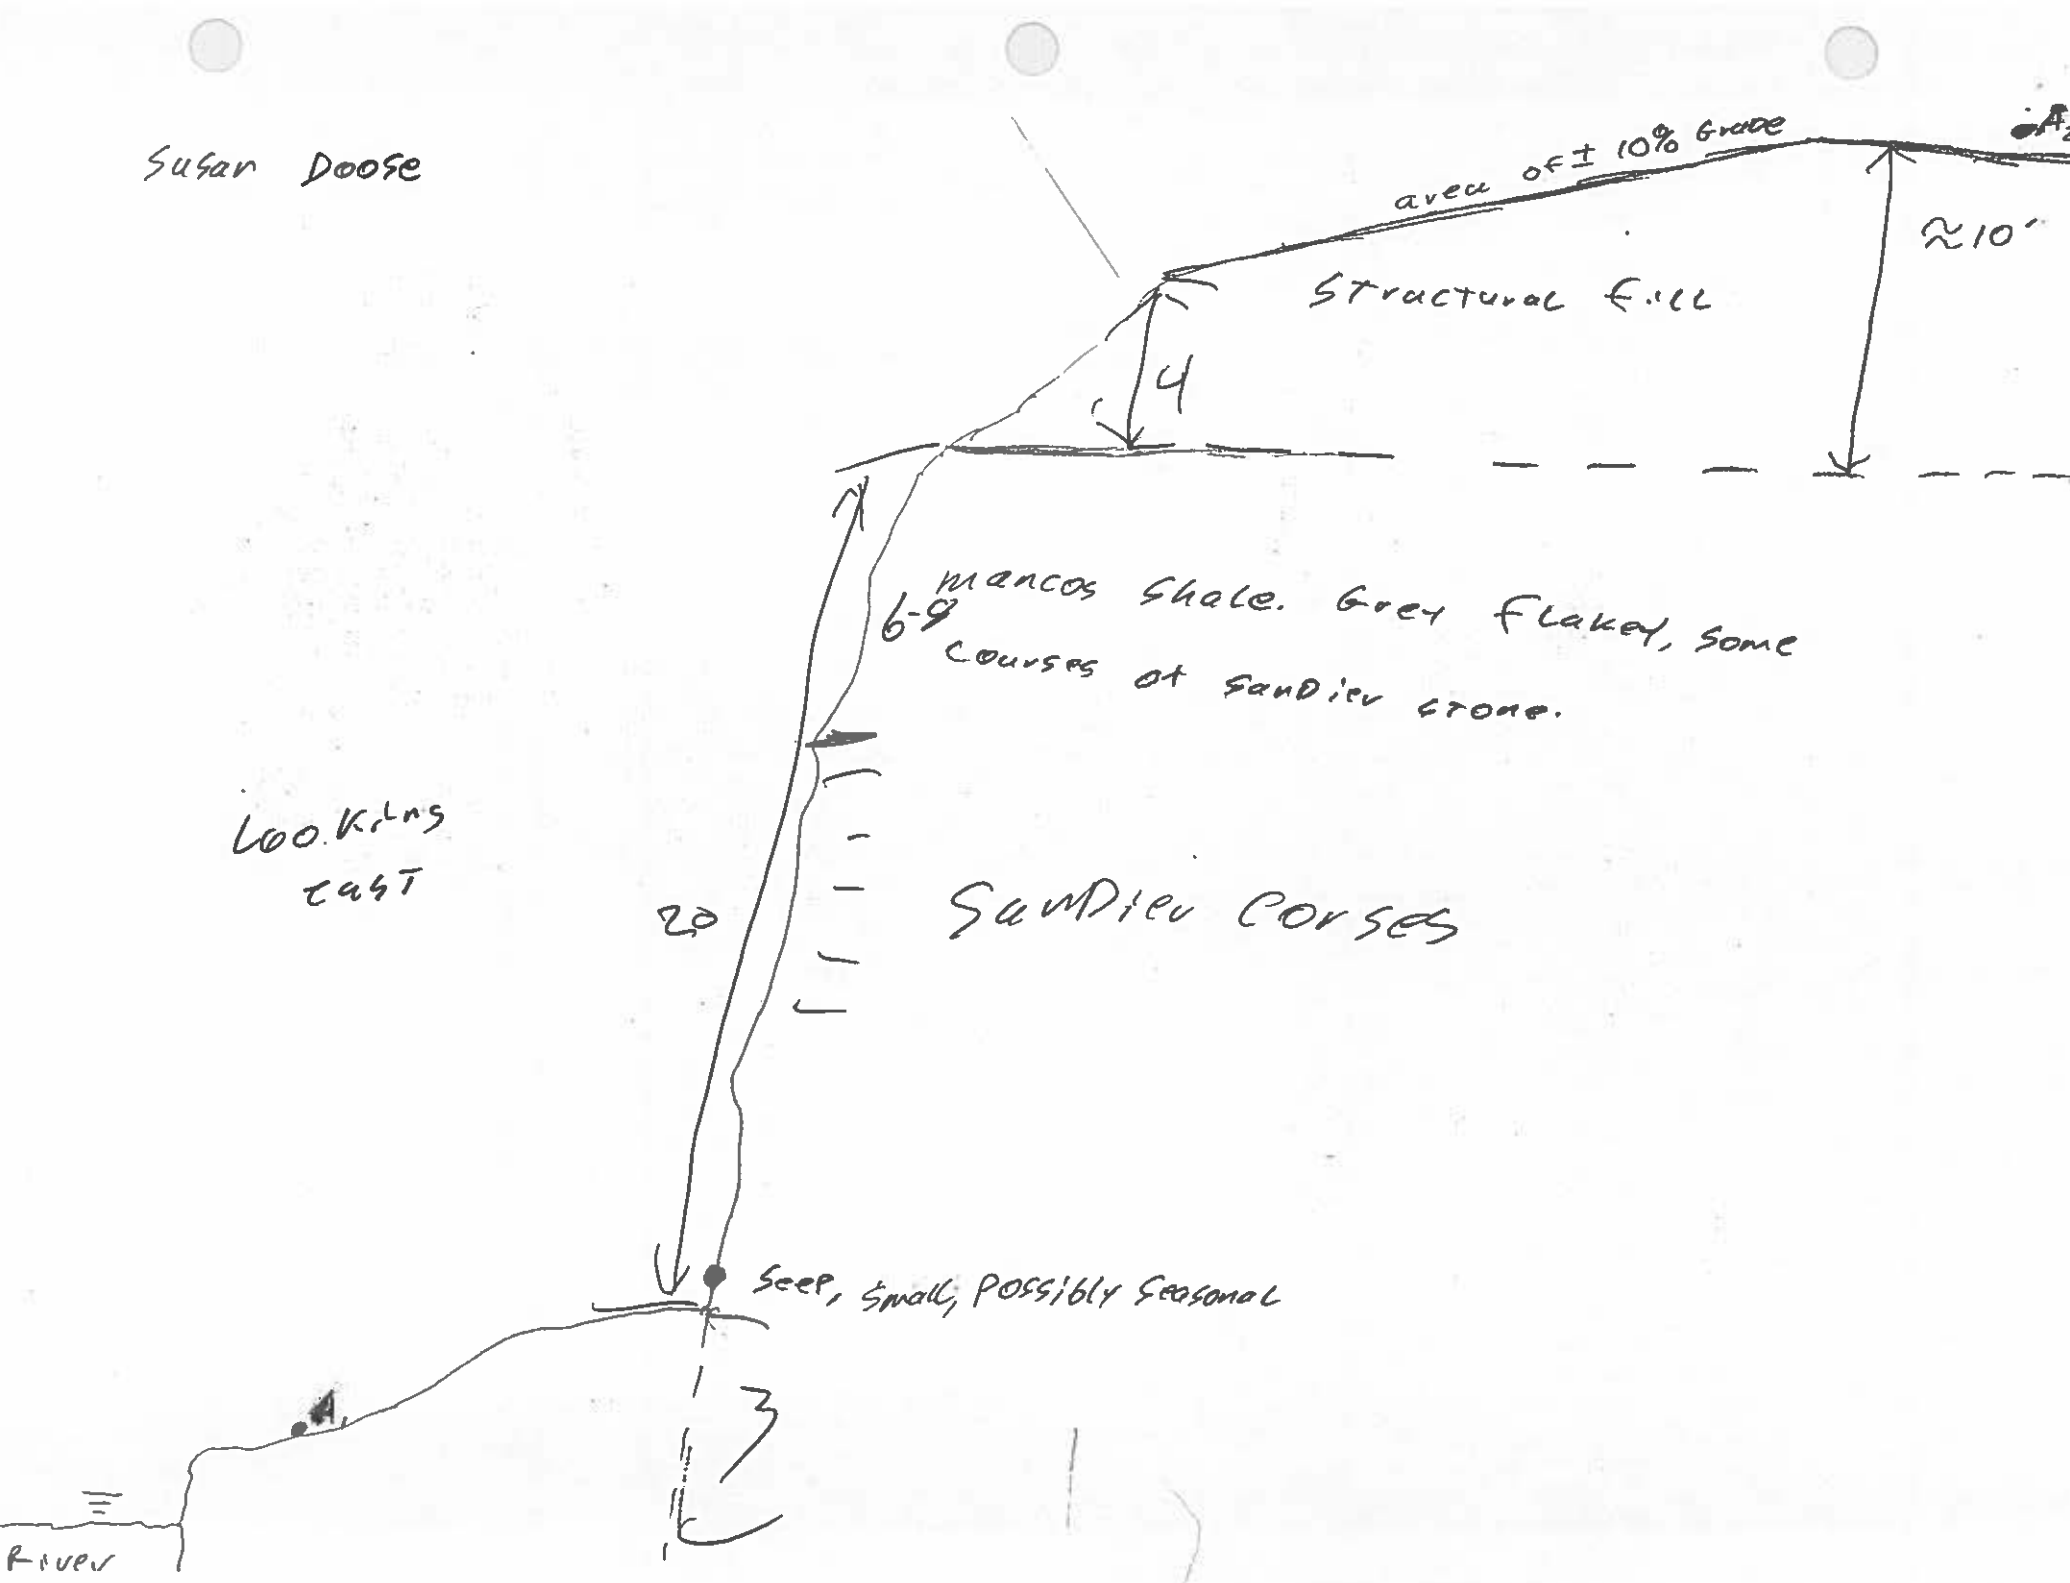 Susan Doose
area of ± 10% Grade
A2
≈10'
Structural Fill
4
mancos Shale. Grey Flakey, some
6-8
courses of sandier stone.
Looking
East
20
Sandier Corses
Seep, Small, Possibly Seasonal
A1
3
River